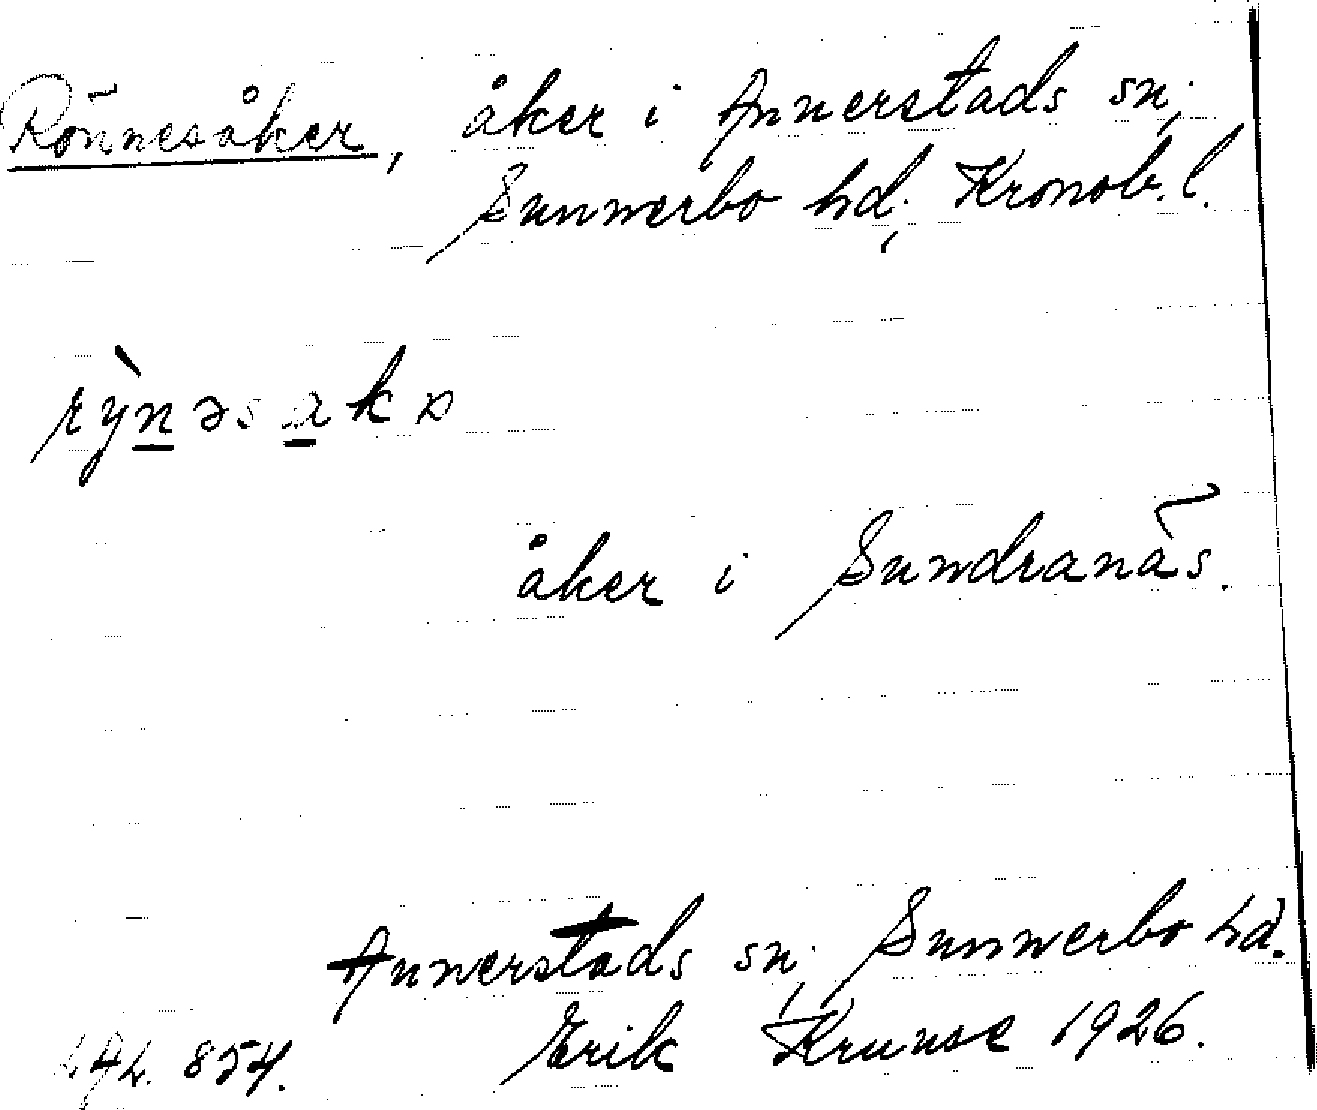 Rönnesåker, åker i Annerstads sn,
Sunnerbo hd, Kronob. l.
rỳnəsakə
åker i Sundranäs.
Annerstads sn, Sunnerbo hd.
854. Erik Kruuse 1926.